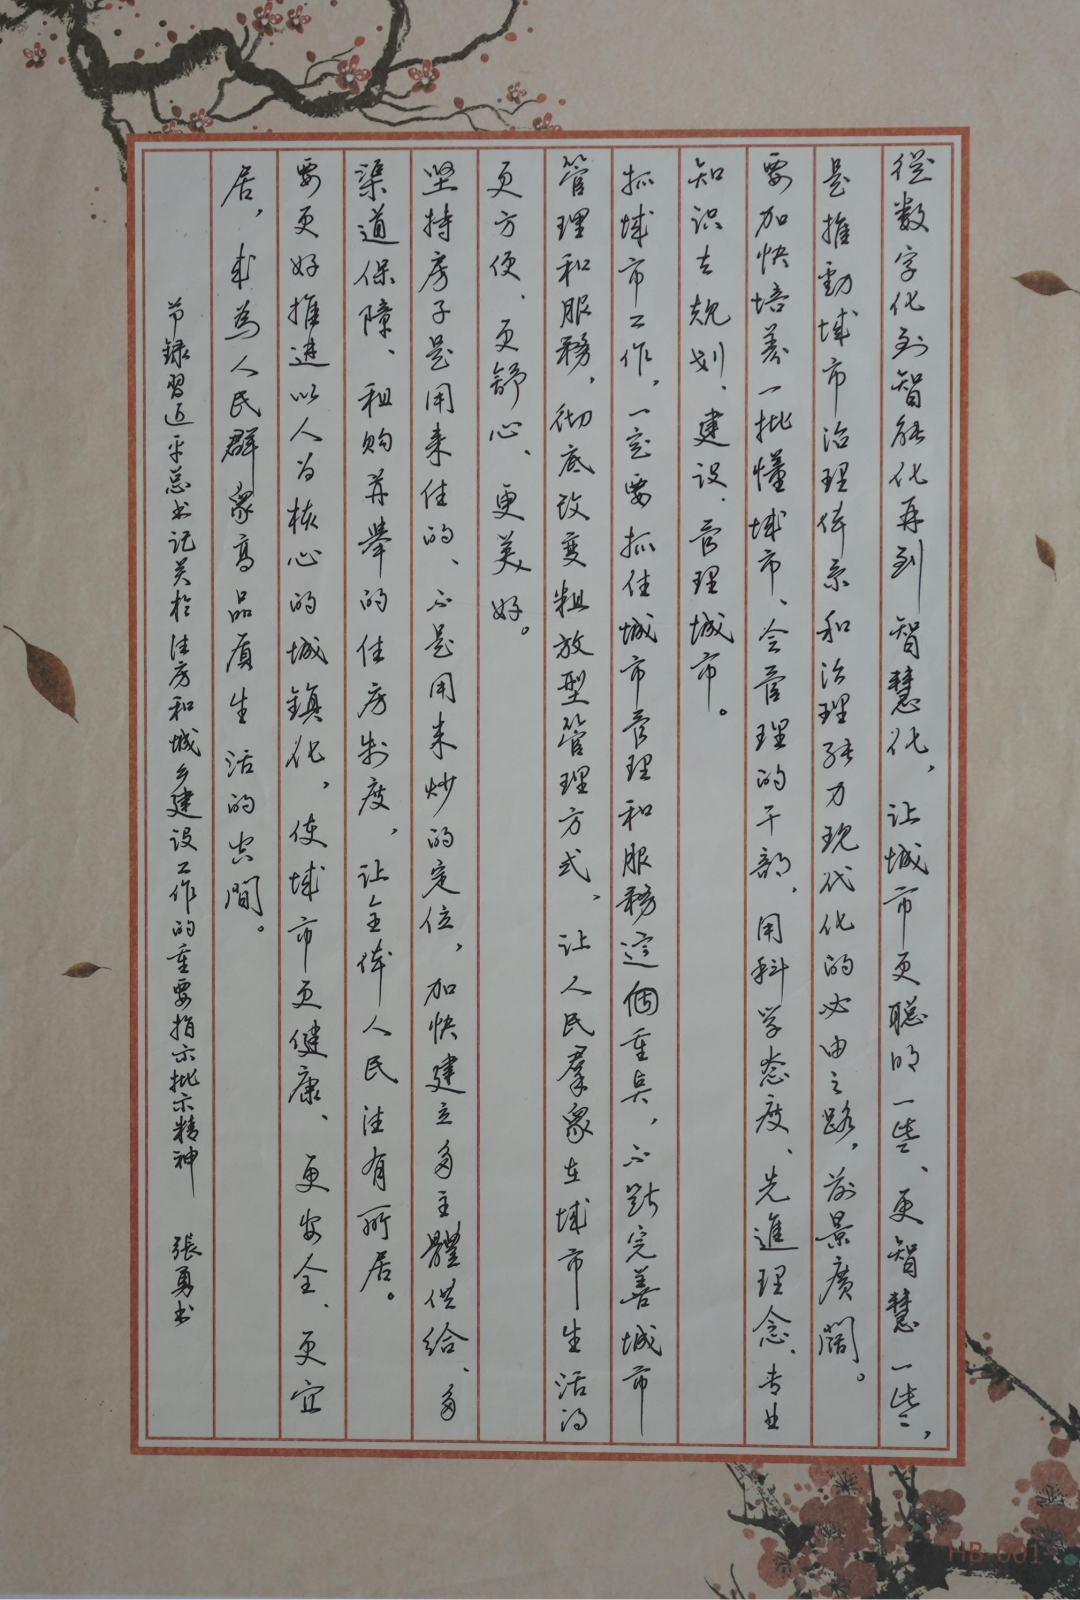 從数字化到智能化再到智慧化，让城市更聪明一些、更智慧一些，
是推動城市治理体系和治理能力现代化的必由之路，前景廣闊。
要加快培养一批懂城市、会管理的干部，用科学态度、先進理念、专业
知识去规划、建设、管理城市。
抓城市工作，一定要抓住城市管理和服務這個重点，不断完善城市
管理和服務，彻底改变粗放型管理方式，让人民羣眾在城市生活得
更方便、更舒心、更美好。
坚持房子是用来住的、不是用来炒的定位，加快建立多主體供给、多
渠道保障、租购并举的住房制度，让全体人民住有所居。
要更好推进以人为核心的城鎮化，使城市更健康、更安全、更宜
居，成為人民群眾高品质生活的空間。
节録習近平总书记关於住房和城乡建设工作的重要指示批示精神 張勇书
HB-001